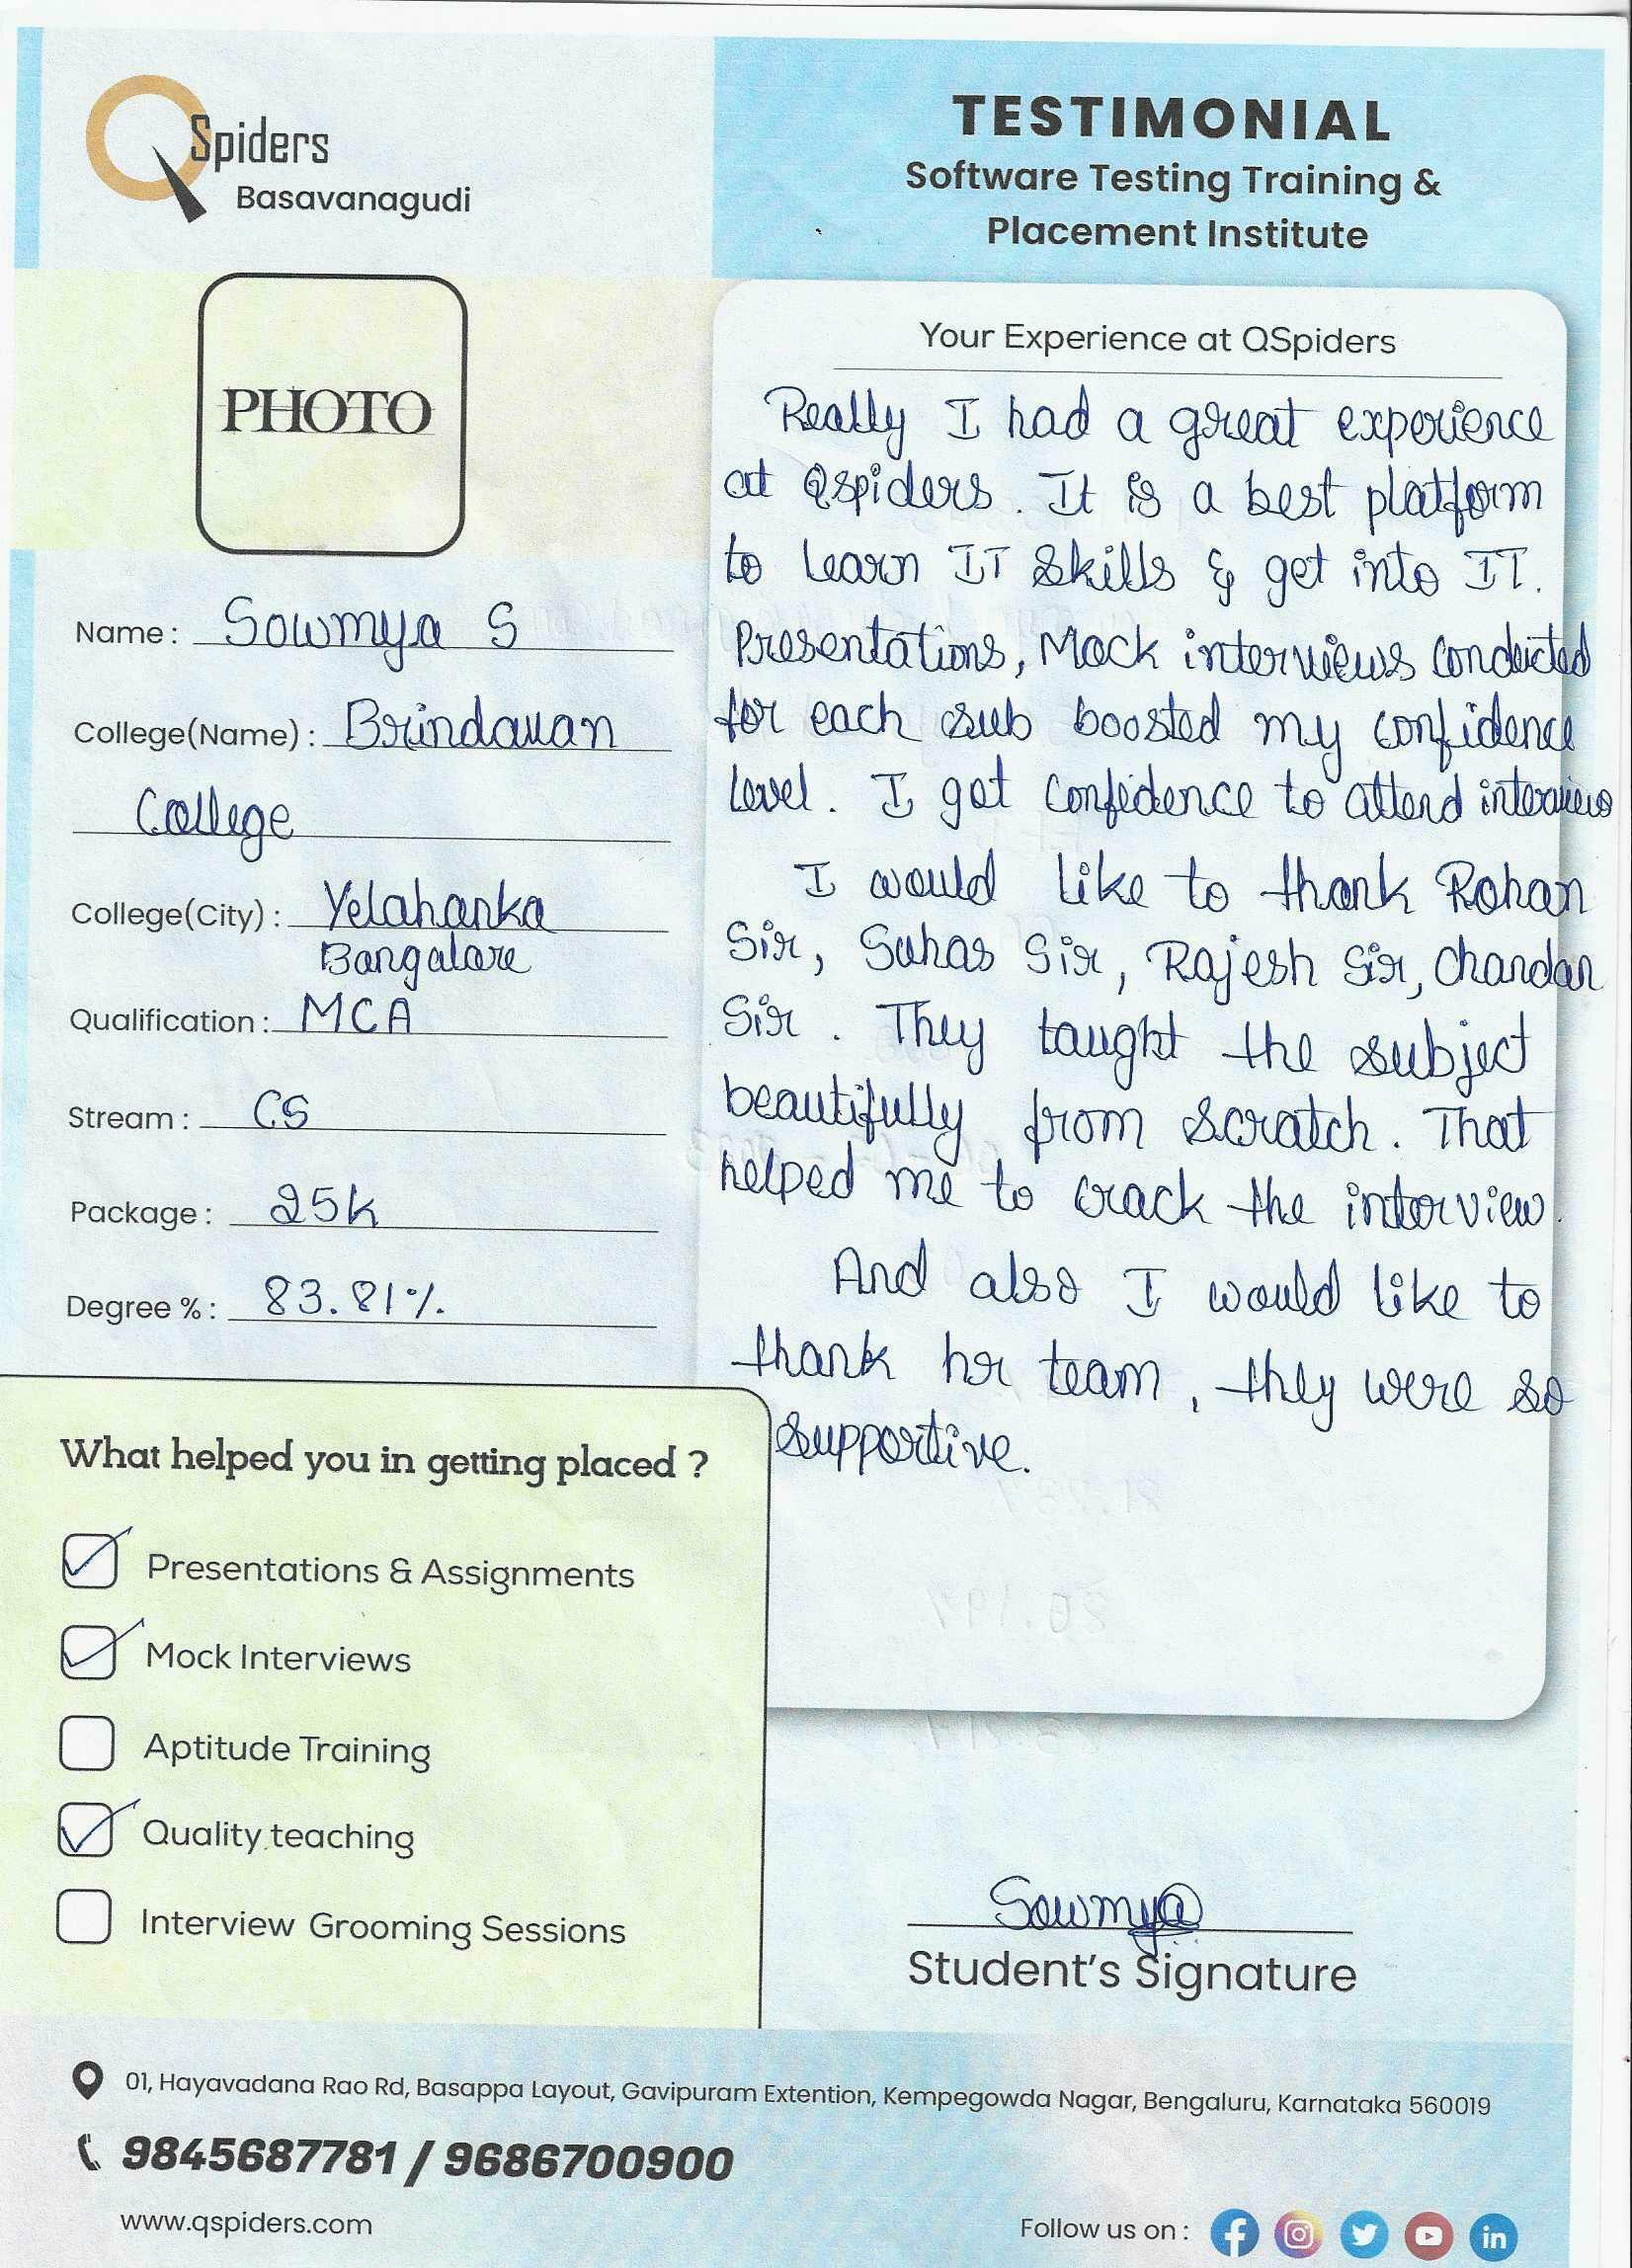 QSpiders
Basavanagudi
TESTIMONIAL
Software Testing Training &
Placement Institute
PHOTO
Name : Sowmya S
College(Name) : Brindavan
College
College(City) : Yelahanka
Bangalore
Qualification : MCA
Stream : CS
Package : 25k
Degree % : 83.81%
Your Experience at QSpiders
Really I had a great experience
at Qspiders. It is a best platform
to learn IT Skills & get into IT.
Presentations, Mock interviews conducted
for each sub boosted my confidence
level. I got confidence to attend interview
I would like to thank Rohan
Sir, Suhas Sir, Rajesh Sir, Chandan
Sir. They taught the subject
beautifully from scratch. That
helped me to crack the interview.
And also I would like to
thank hr team, they were so
supportive.
What helped you in getting placed ?
Presentations & Assignments
Mock Interviews
Aptitude Training
Quality teaching
Interview Grooming Sessions
Sowmya
Student's Signature
01, Hayavadana Rao Rd, Basappa Layout, Gavipuram Extention, Kempegowda Nagar, Bengaluru, Karnataka 560019
9845687781 / 9686700900
www.qspiders.com
Follow us on :